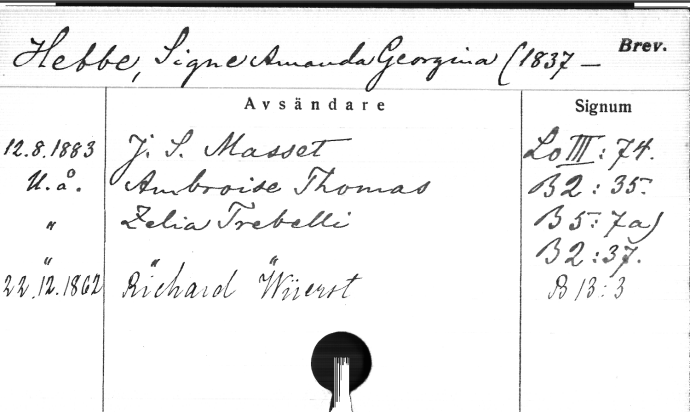 Hebbe, Signe Amanda Georgina (1837 — Brev.
Avsändare Signum
12.8.1883 J. S. Masset Lo III: 74.
U. å. Ambroise Thomas B 2 : 35.
" Zelia Trebelli B 5: 7a)
" " " B 2 : 37.
22.12.1862 Richard Wüerst B 13 : 3